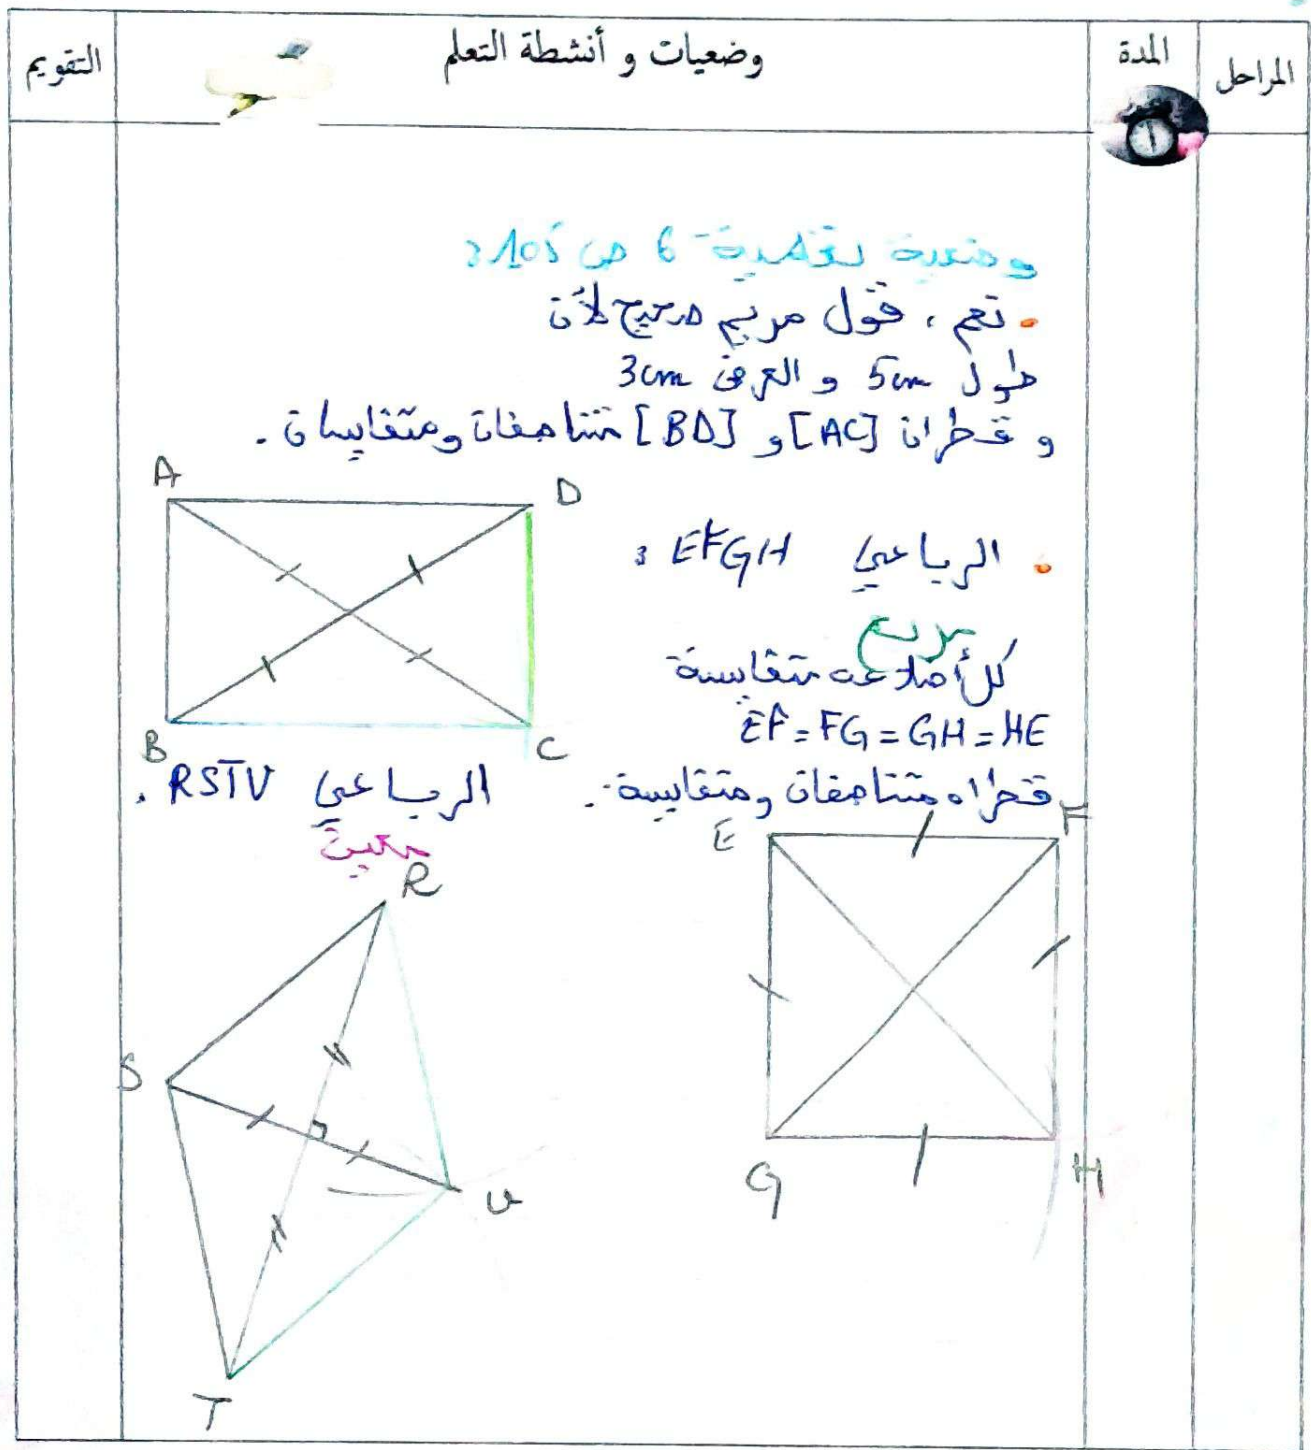 المراحل
المدة
وضعيات و أنشطة التعلم
التقويم
وضعية تعلمية 6 ص 105:
• نعم ، قول مريم صحيح لأن
طول 5cm و العرض 3cm
و قطران [AC] و [BD] متناصفان ومتقايسان .
A
D
B
C
• الرباعي EFGH :
مربع
كل أضلاعه متقايسة
EF = FG = GH = HE
قطراه متناصفان ومتقايسة .
E
F
G
H
الرباعي RSTV .
معين
R
S
U
T